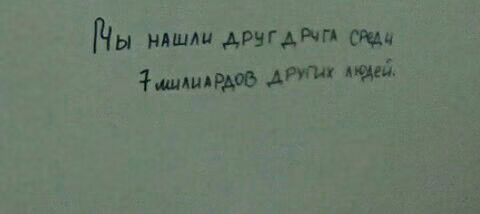 Мы нашли друг друга среди
7 милиардов других людей.